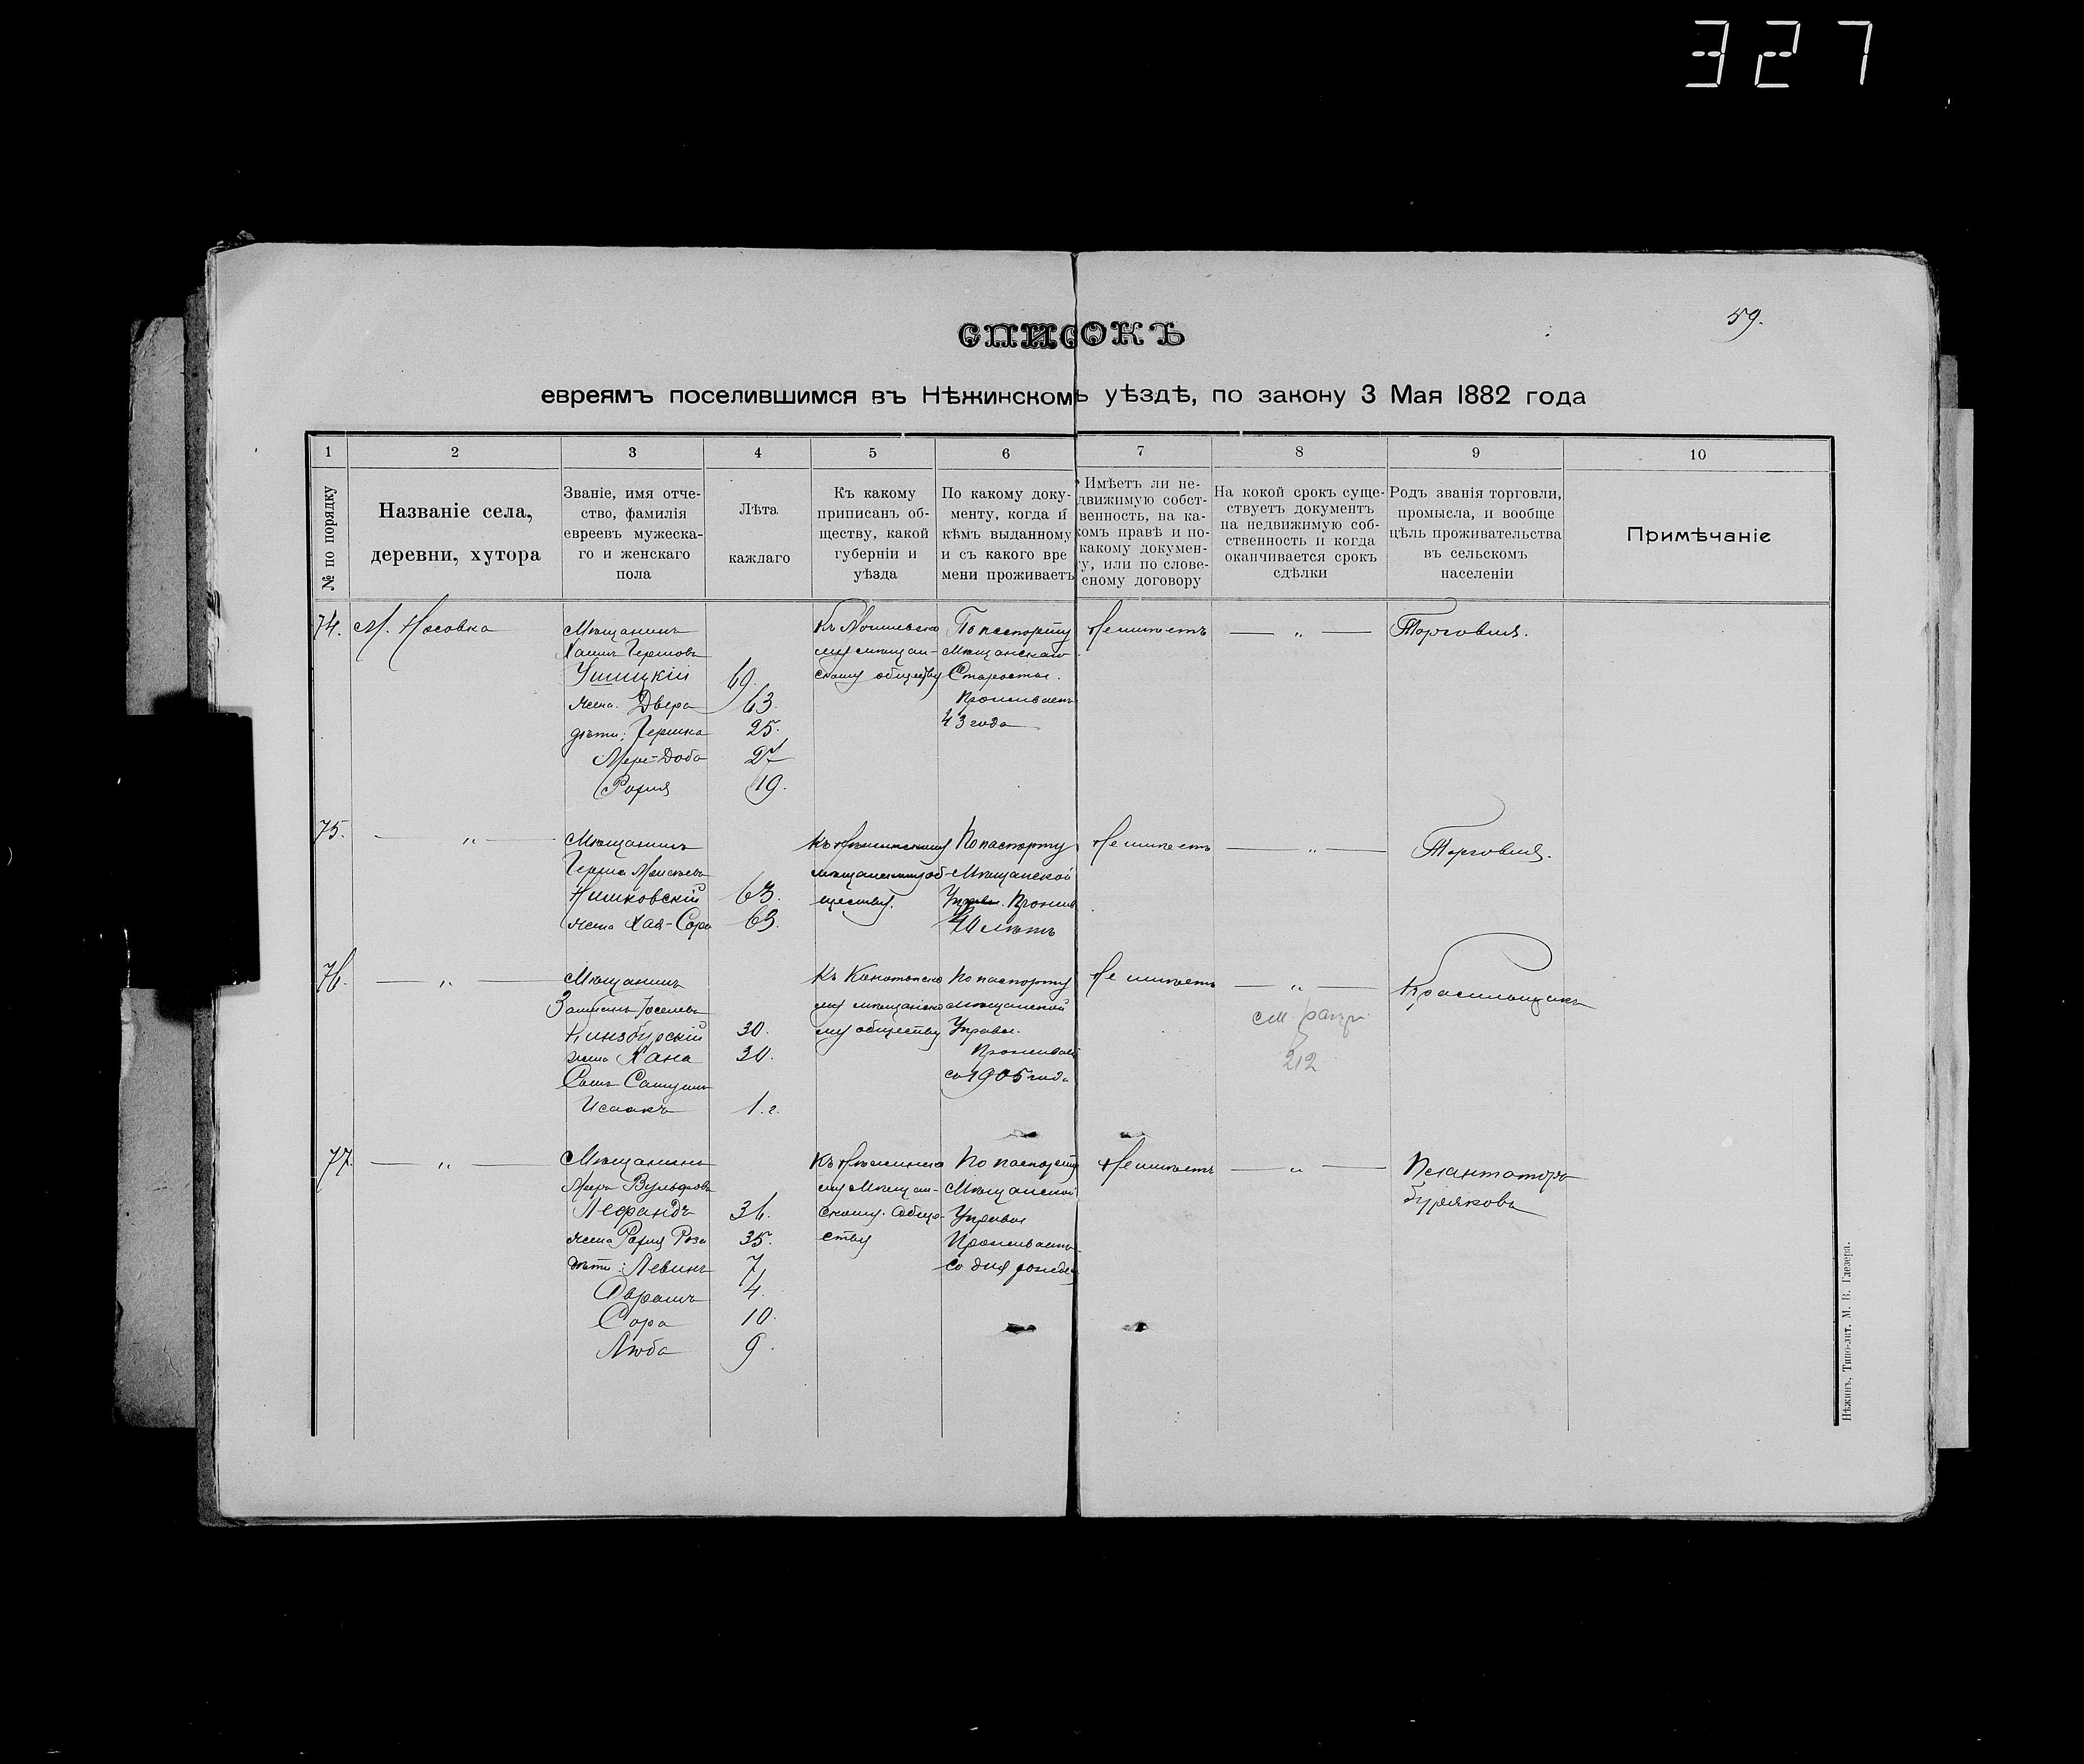 327
59.
СПИСОКЪ
евреямъ поселившимся въ Нѣжинскомъ уѣздѣ, по закону 3 Мая 1882 года
1 2 3 4 5 6 7 8 9 10
№ по порядку
Названіе села,
деревни, хутора
Званіе, имя отче-
ство, фамилія
евреевъ мужеска-
го и женскаго
пола
Лѣта
каждаго
Къ какому
приписанъ об-
ществу, какой
губерніи и
уѣзда
По какому доку-
менту, когда и
кѣмъ выданному
и съ какого вре
мени проживаетъ
Имѣетъ ли не-
движимую собст-
венность, на ка-
комъ правѣ и по-
какому докумен-
ту, или по слове-
сному договору
На кокой срокъ суще-
ствуетъ документъ
на недвижимую соб-
ственность и когда
оканчивается срокъ
сдѣлки
Родъ званія торговли,
промысла, и вообще
цѣль проживательства
въ сельскомъ
населеніи
Примѣчаніе
74.
М. Носовка
Мѣщанинъ
Хаимъ Гершовъ
Ушицкій 69.
жена Двера 63.
дѣти: Гершка 25.
Мере-Доба 27
Рофия 19.
му мѣщан-
скому обществу
По паспорту
Мѣщанскаго
Старосты.
Проживаетъ
43 года
Не имѣетъ
— „ —
Торговля.
75.
— „ —
Мѣщанинъ
63.
жена Хая-Сора 63.
Къ Нѣжинскому
мѣщанскому об-
ществу.
По паспорту
Мѣщанской
Управы. Прожив
40 лѣтъ
Не имѣетъ
— „ —
Торговля.
76.
— „ —
Мѣщанинъ
Гинзбурскій 30.
жена Хана 30.
Сынъ Самуилъ
Исаакъ 1.г.
Къ Конотопско
му мѣщанско
му обществу
По паспорту
мѣщанской
Управы.
Проживает
съ 1905 года
Не имѣетъ
— „ —
см.
212
Красильщикъ
77.
— „ —
Мѣщанинъ
Меръ Вульфовъ
36.
жена Рофия Роза 35.
дѣти: Левинъ 7
Абрамъ 4.
Сора 10.
Люба 9.
Къ Нѣжинско
му Мѣщан-
скому Обще-
ству
По паспорту
Мѣщанской
Управы
Проживаетъ
со дня рожден
Не имѣетъ
— „ —
Плантаторъ
буряковъ
Нѣжинъ, Типо-лит. М. В. Глезера.